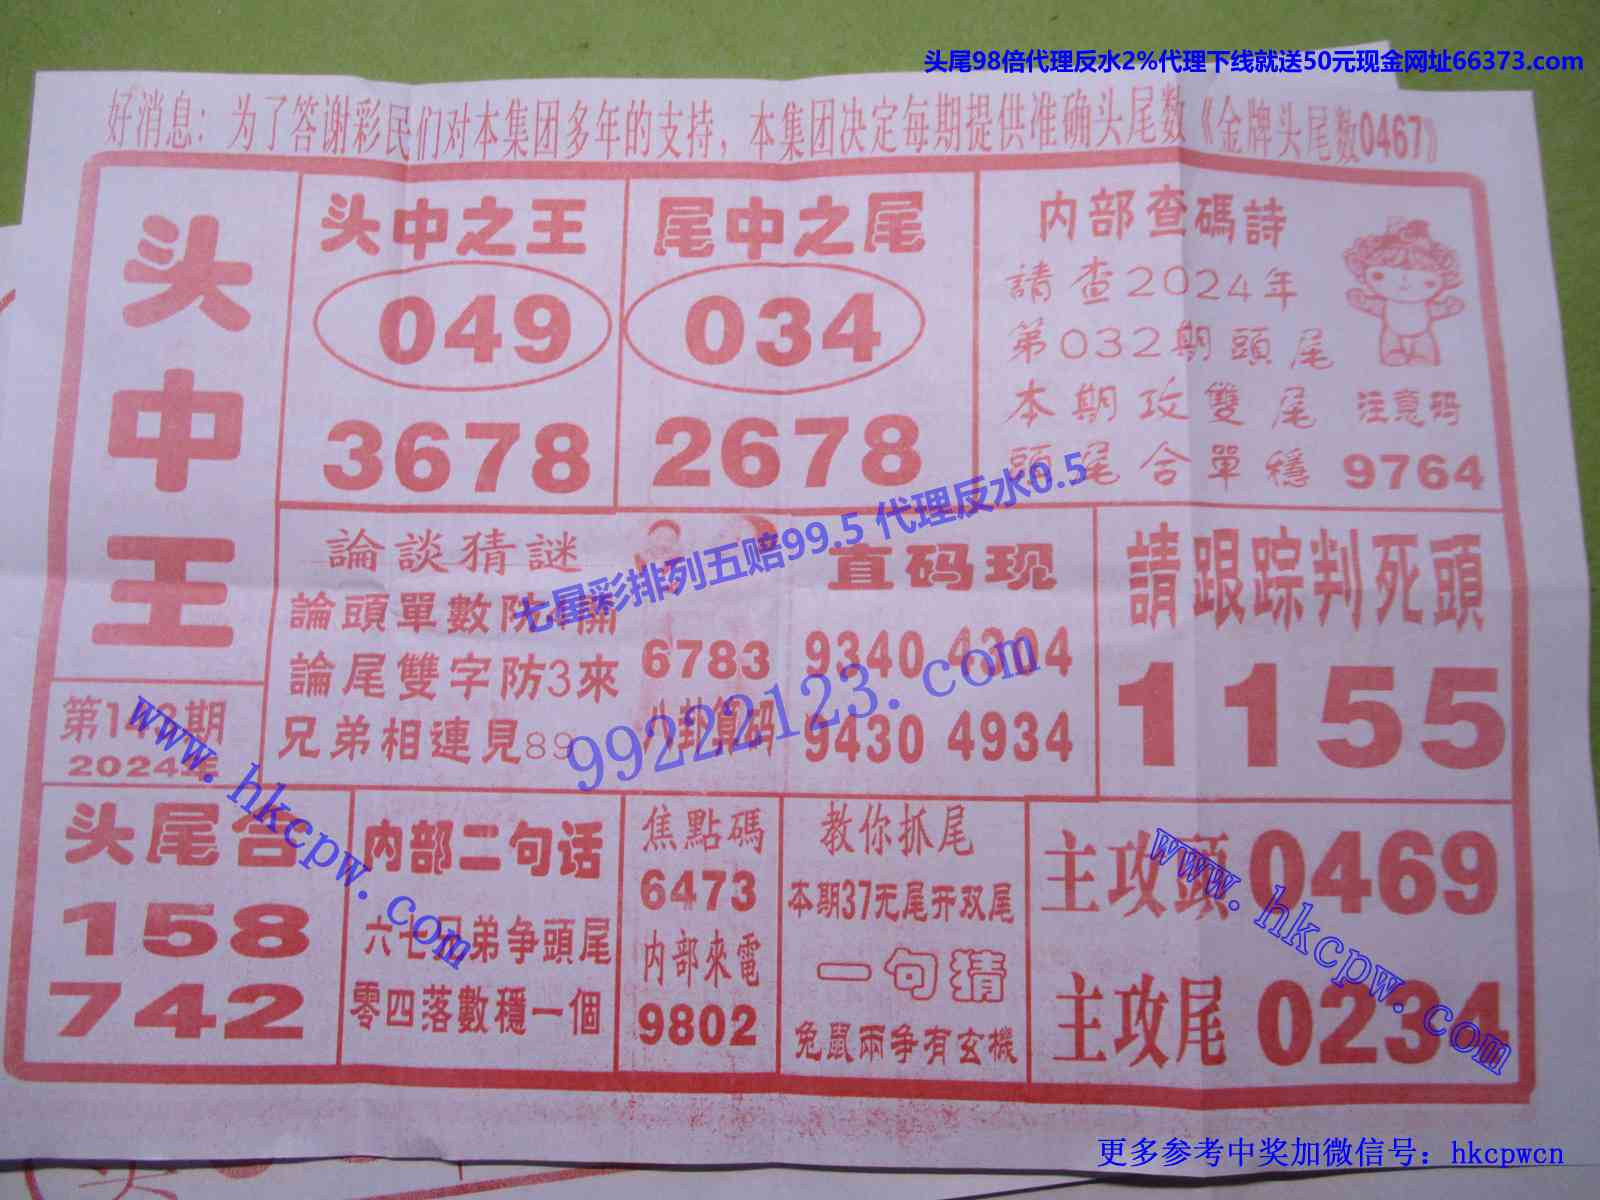 头尾98倍代理反水2%代理下线就送50元现金网址66373.com
好消息：为了答谢彩民们对本集团多年的支持，本集团决定每期提供准确头尾数《金牌头尾数0467》
头中王
2024年
头中之王
049
3678
尾中之尾
034
2678
内部查碼詩
請查2024年
第032期頭尾
本期攻雙尾
頭尾合單穩
注意码
9764
論談猜謎
論頭單數防
論尾雙字防3來
兄弟相連見89
6783
八卦算码
直码现
9340 4304
9430 4934
請跟踪判死頭
1155
七星彩排列五赔99.5 代理反水0.5
99222123.com
头尾合
158
742
内部二句话
六七兄弟争頭尾
零四落數穩一個
焦點碼
6473
内部來電
9802
教你抓尾
本期37无尾开双尾
一句猜
兔鼠兩争有玄機
主攻頭 0469
主攻尾 0234
www.hkcpw.com
www.hkcpw.com
更多参考中奖加微信号：hkcpwcn